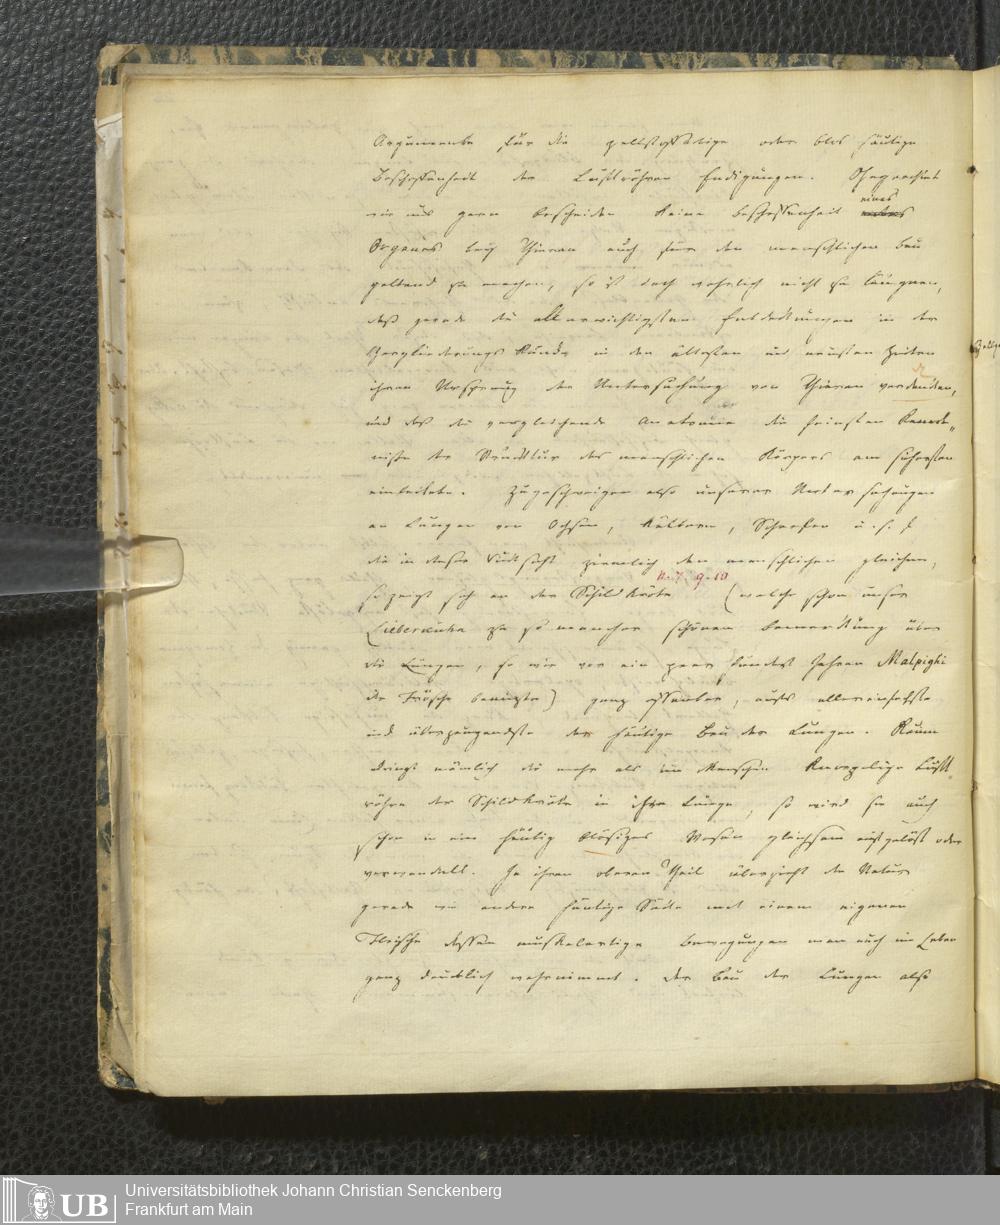 Argumente für die zellstoffartige oder blos häutige
Beschaffenheit der Luftröhren Endigungen. Ohngeachtet
wir uns gern bescheiden keine Beschaffenheit eines
Organes bey Thieren auch für den menschlichen Bau
geltend zu machen, so ist doch wahrlich nicht zu läugnen,
daß gerade die allerwichtigsten Entdeckungen in der
Zergliederungs Kunde in den ältesten und neusten Zeiten
ihren Ursprung der Untersuchung von Thieren verdanken,
und daß die vergleichende Anatomie die feinsten Kennt-
nisse der Strucktur des menschlichen Körpers am sichersten
einleitete. Zugeschweigen also unserer Untersuchungen
an Lungen von Ochsen, Kälbern, Schaafen u. s. f.
die in dieser Rücksicht ziemlich den menschlichen gleichen,
n. 7. 9. 10
so zeigt sich an der Schildkröte (welche schon unser
Lieberkühn zu so mancher schönen Bemerkung über
die Lungen, so wie vor ein paar hundert Jahren Malpighi
die Frösche benuzte) ganz offenbar, aufs allereinfachste
und überzeugendste der häutige Bau der Lungen. Kaum
dringt nämlich die mehr als im Menschen knorpelige Luft-
röhre der Schildkröte in ihre Lunge, so wird sie auch
schon in ein häutig blasiges Wesen gleichsam aufgelöst oder
verwandelt. In ihrem obern Theil überzieht die Natur
gerade wie andere häutige Säcke mit einem eigenen
Fleische dessen muskelartige Bewegungen man auch im Leben
ganz deutlich wahrnimmt. Der Bau der Lungen also
Universitätsbibliothek Johann Christian Senckenberg
Frankfurt am Main
UB